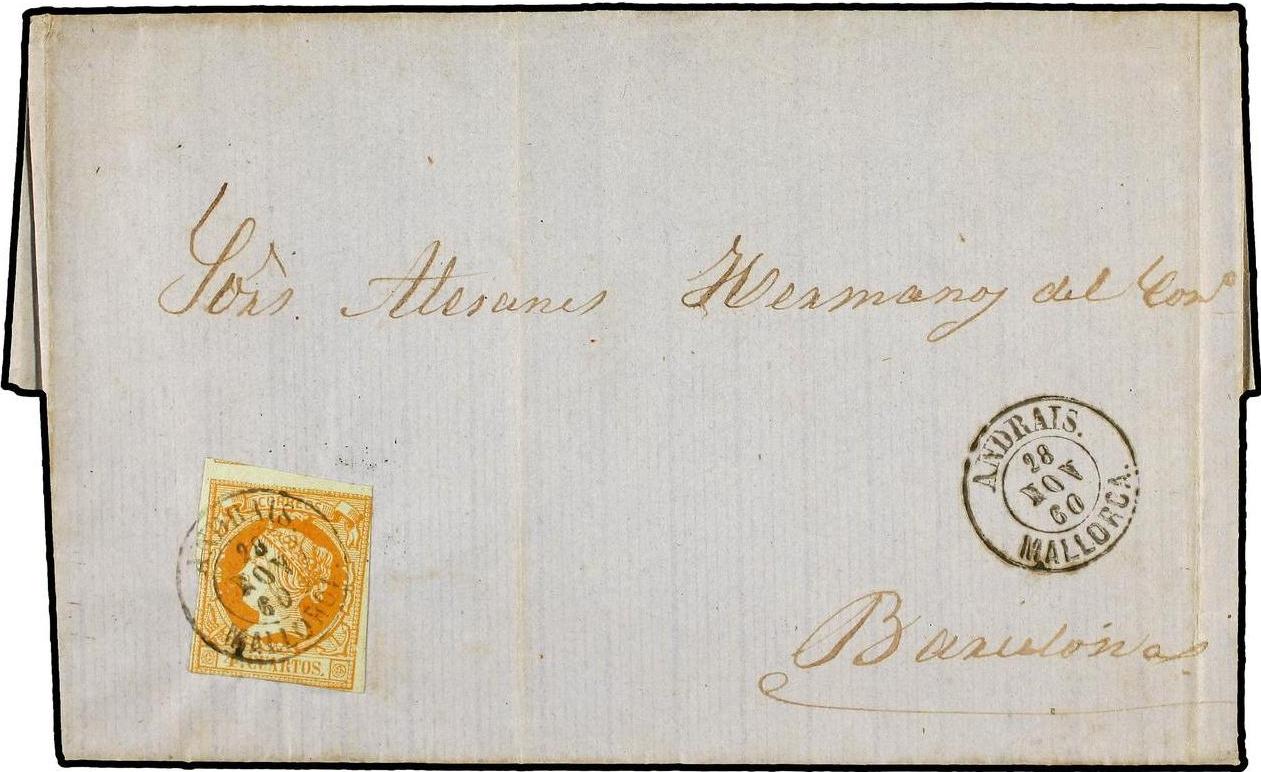 Sõrs. Atesanes Hermanos del Comº
ANDRAIS.
28
NOV
60
MALLORCA.
CORREOS
ANDRAIS.
28
NOV
60
MALLORCA.
4 CUARTOS.
Barcelona